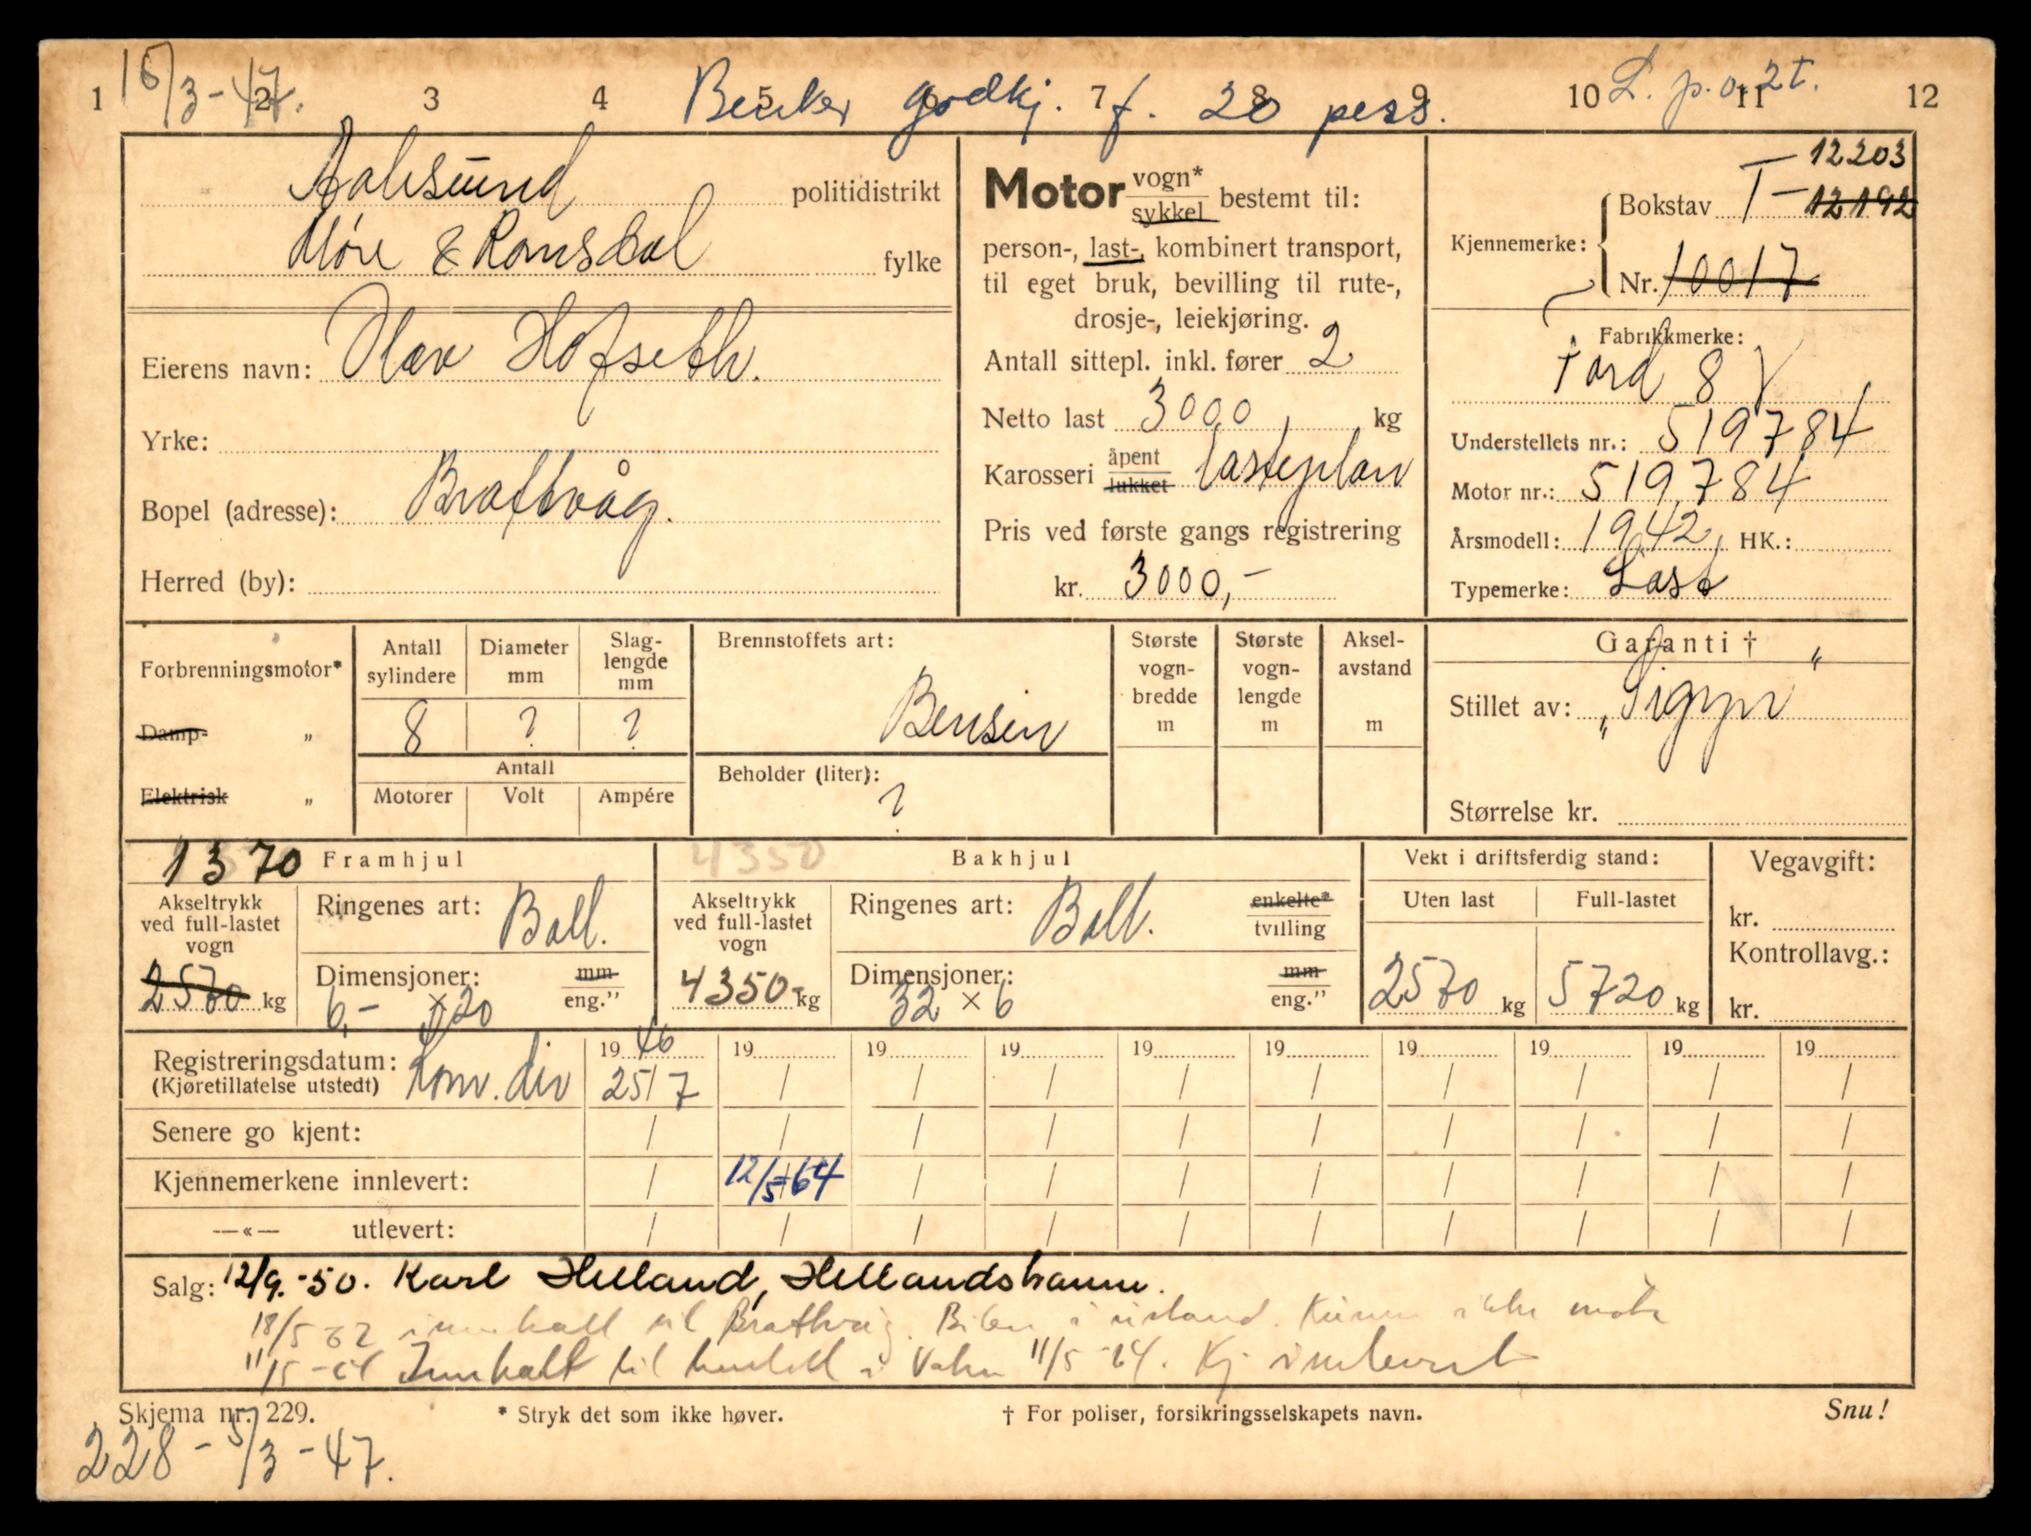 1 2 3 4 5 6 7 8 9 10 11 12
15/3-47. Benker godkj. f. 20 pers. L. p. o. 2t.
Aalesund politidistrikt
Møre & Romsdal fylke
Eierens navn: Olav Hofseth.
Yrke:
Bopel (adresse): Brattvåg.
Herred (by):
Motor vogn* sykkel bestemt til:
person-, last-, kombinert transport,
til eget bruk, bevilling til rute-,
drosje-, leiekjøring.
Antall sittepl. inkl. fører 2
Netto last 3000 kg
Karosseri åpent lukket lasteplan
Pris ved første gangs registrering
kr. 3000,-
T-12203
Kjennemerke: Bokstav T-12192
Nr. 10017
Fabrikkmerke:
Ford 8 V
Understellets nr.: 519784
Motor nr.: 519784
Årsmodell: 1942 HK.:
Typemerke: Last
Forbrenningsmotor*
Damp- „
Elektrisk „
Antall sylindere Diameter mm Slag-lengde mm
8 ? ?
Antall
Motorer Volt Ampére
Brennstoffets art:
Bensin
Beholder (liter):
?
Største vogn-bredde m
Største vogn-lengde m
Aksel-avstand m
Garanti †
Stillet av: „Sigyn"
Størrelse kr.
1370 Framhjul
Akseltrykk ved full-lastet vogn
2570 kg
Ringenes art: Ball.
Dimensjoner: 6,- x 20 mm eng.”
4350 Bakhjul
Akseltrykk ved full-lastet vogn
4350 kg
Ringenes art: Ball. enkelte* tvilling
Dimensjoner: 32 x 6 mm eng.”
Vekt i driftsferdig stand:
Uten last Full-lastet
2570 kg 5720 kg
Vegavgift:
kr.
Kontrollavg.:
kr.
Registreringsdatum: 1946 19 19 19 19 19 19 19 19 19
(Kjøretillatelse utstedt) Lom. div 25/7 / / / / / / / / /
Senere go kjent: / / / / / / / / / /
Kjennemerkene innlevert: / 12/5-64 / / / / / / / /
—«— utlevert: / / / / / / / / / /
Salg: 12/9.-50. Karl Helland, Hellandshamn.
18/5 62 innkalt til Brattvåg. Bilen i ustand. Kunne ikke møte
11/5-64 Innkalt til kontroll i Vatne 11/5-64. Kj innlevert
Skjema nr. 229. * Stryk det som ikke høver. † For poliser, forsikringsselskapets navn. Snu!
228-5/3-47.